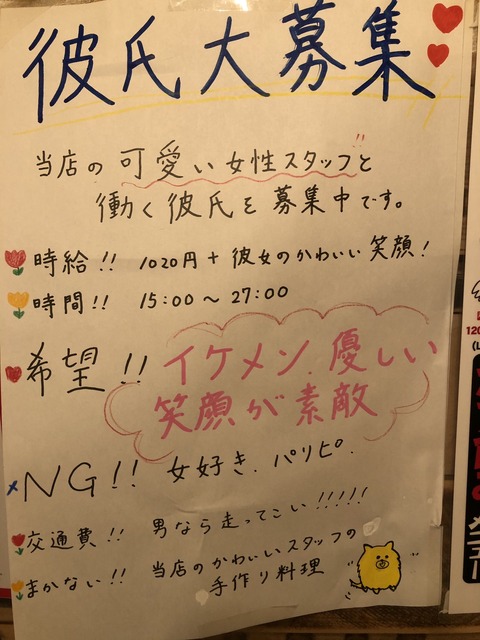 彼氏大募集
当店の可愛い女性スタッフと
働く彼氏を募集中です。
時給!! 1020円+彼女のかわいい笑顔!
時間!! 15:00〜27:00
希望!! イケメン.優しい
笑顔が素敵
NG!! 女好き.パリピ.
交通費!! 男なら走ってこい!!!!!
まかない!! 当店のかわいいスタッフの
手作り料理
120